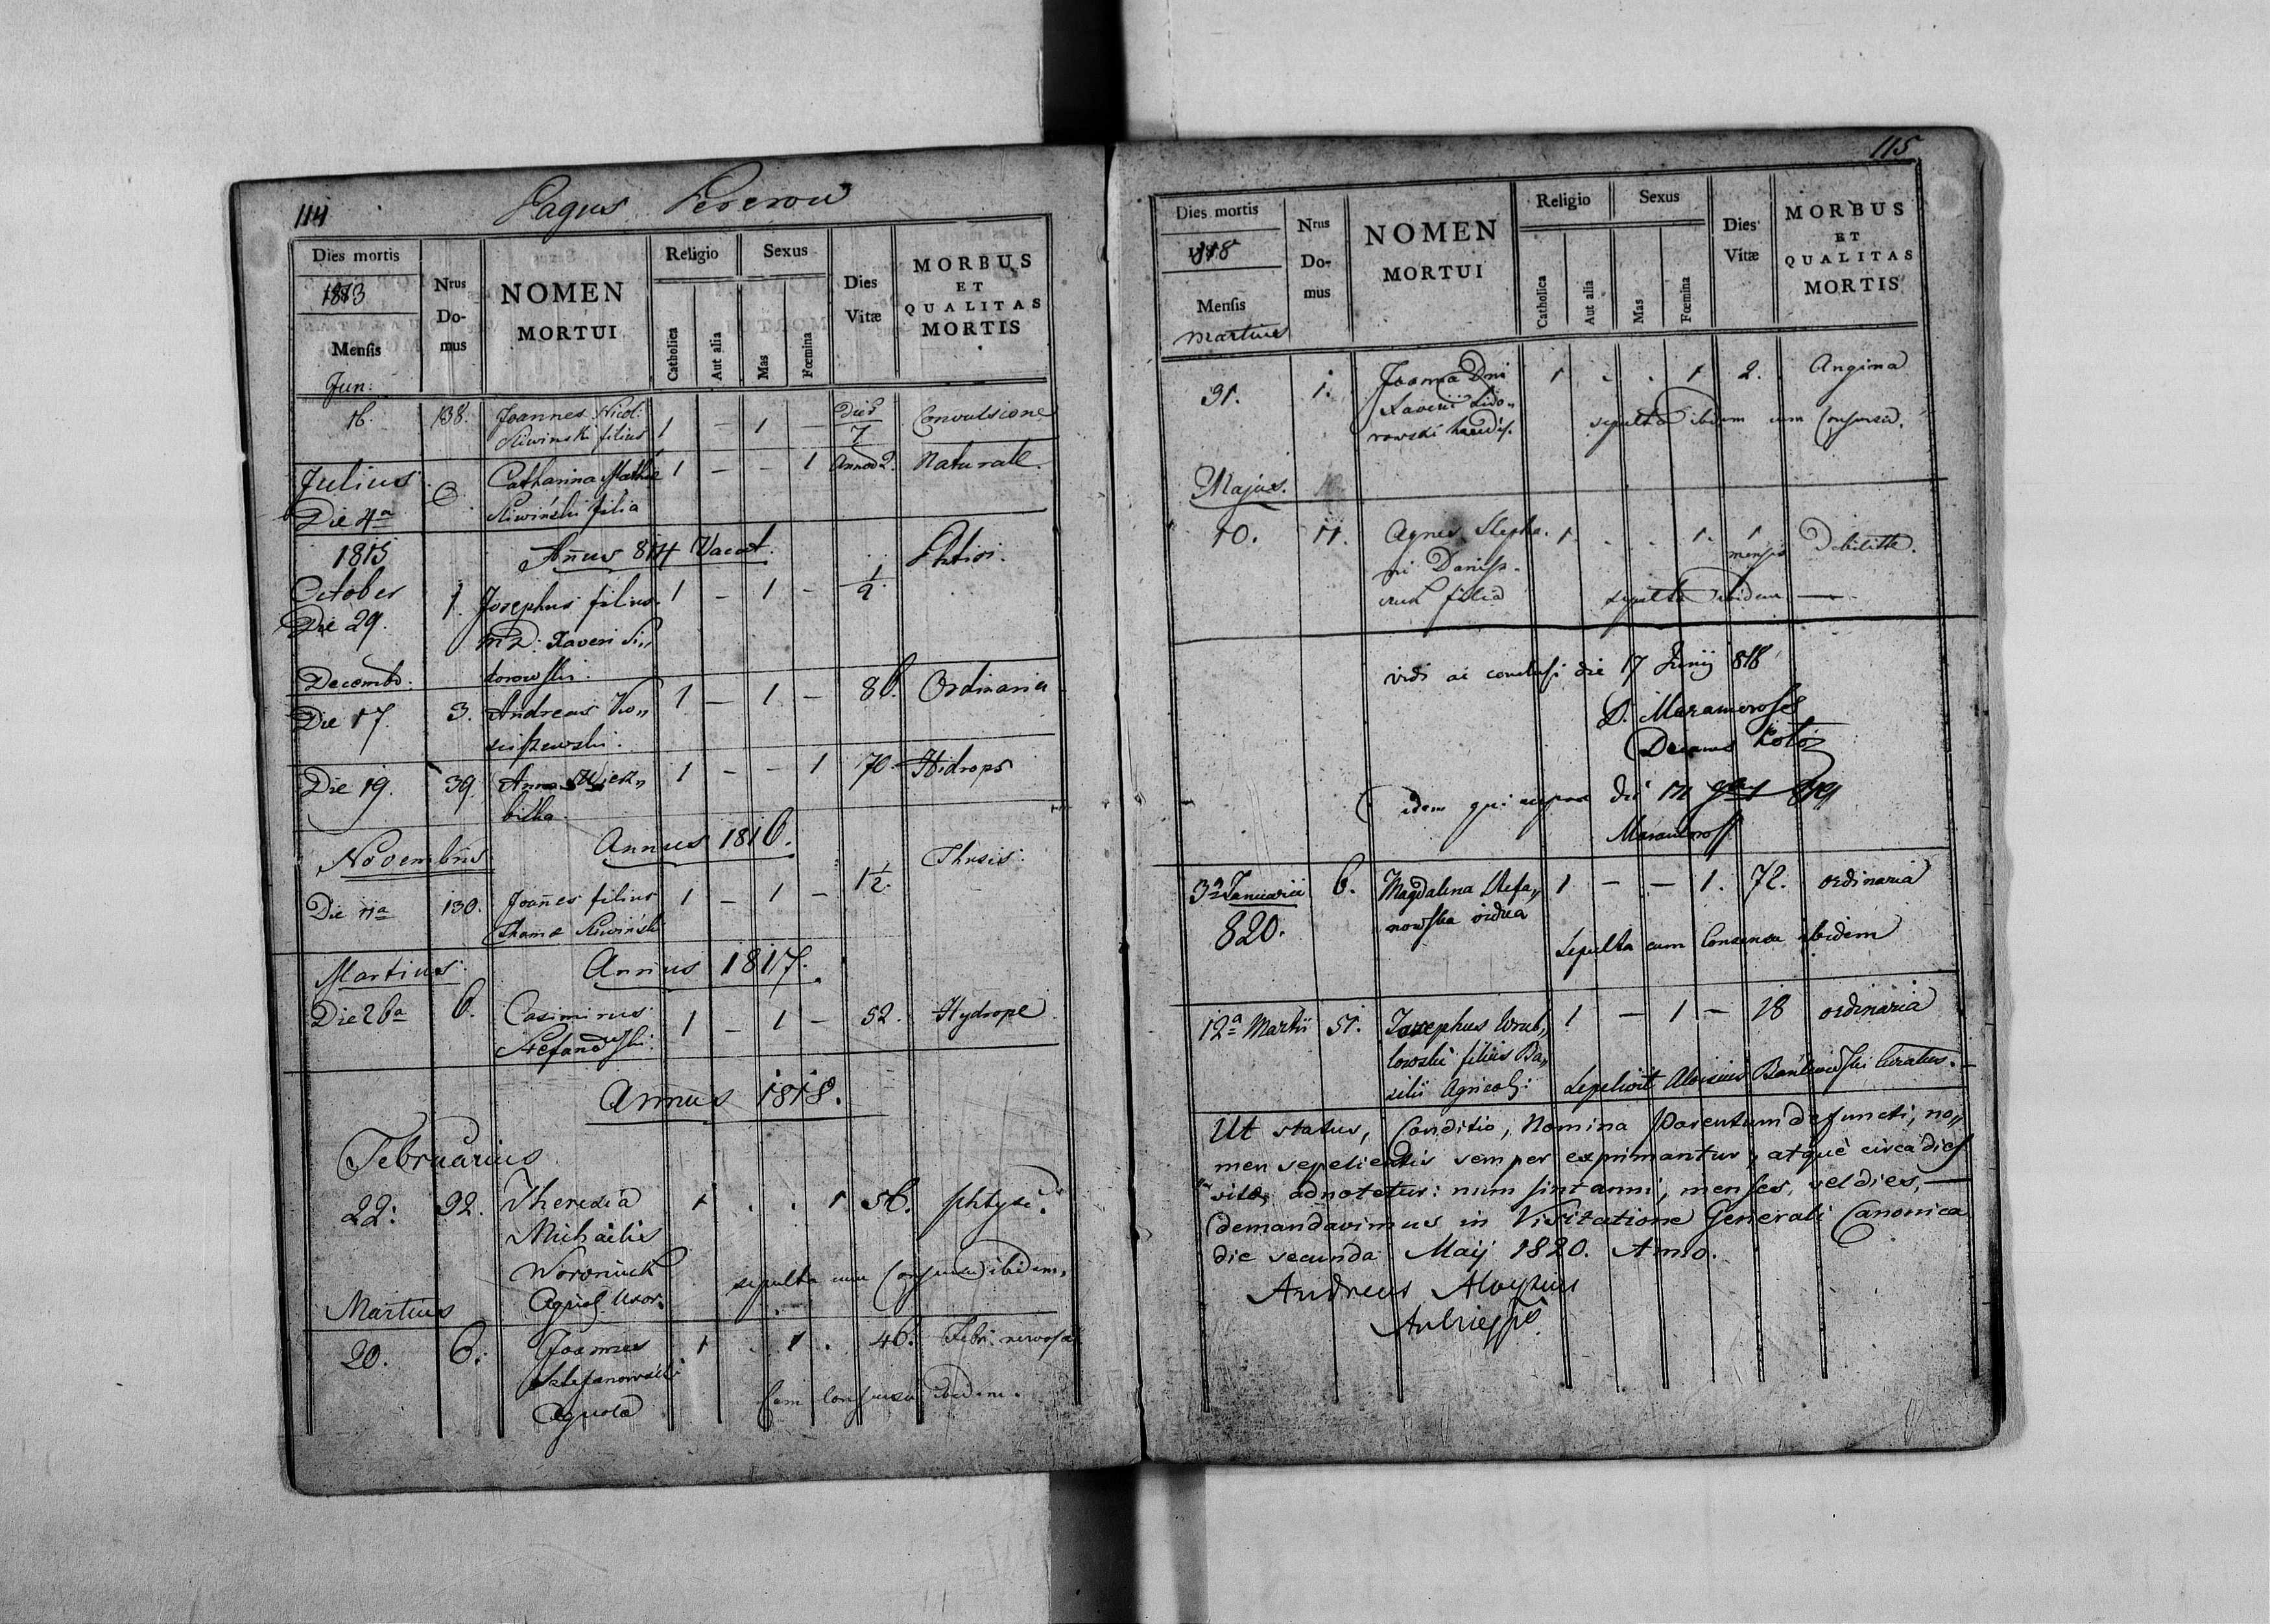 114
Pagus Pererow
Dies mortis
1813
Mensis
Jun:
Nrus Domus
NOMEN MORTUI
Religio
Catholica
Aut alia
Sexus
Mas
Fœmina
Dies Vitæ
MORBUS ET QUALITAS MORTIS
16. 138. Joannes Nicol: 1 – 1 – Dies 7 Convulsione
Sliwinski filius
Julius Catharina Mathiæ 1 – – 1 Annos 2. Naturale.
Die 4a 6 Sliwiński filia
1815 Añus 814 Vacat.
October
Die 29. 1. Josephus filius 1 – 1 – 1/2
M D: Xaveri Si„
dorowski.
Decemb.
Die 17. 3. Andreas Ko„ 1 – 1 – 86. Ordinaria
siszewski.
Die 19. 39. Anna 1 – – 1 70. Hidrops
bitka.
Novembris Annus 1816.
Die 11a 130. Joañes filius 1 – 1 – 1 1/2. Thisis.
Thomæ Sliwiński
Martius. Annus 1817.
Die 26a 6. Casimirus 1 – 1 – 52. Hydrope.
Stefanowski.
Annus 1818.
Februarius
22. 92. Theresia 1 . . 1 56. phtysi.
Michaelis
Woroniuk
Agricol Uxor. sepulta cum Consensu ibidem.
Martius
20. 6. Joannes 1 . 1 . 46. Febri nervosa
Sztefanowski
Agricola Cum consensu ibidem.
115
Dies mortis
818
Mensis
Martius
Nrus Domus
NOMEN MORTUI
Religio
Catholica
Aut alia
Sexus
Mas
Fœmina
Dies Vitæ
MORBUS ET QUALITAS MORTIS
31. 1. Joanna Dni 1 . . 1 2. Angina
Xaverii Sido„
rowski hæredis. sepulta ibidem cum Consensu.
Majus.
10. 11. Agnes Stepha- 1 . . 1. 1 mensis Debilitte.
ni Danisz-
czuk filia sepulta ibidem —
vidi ac conclusi die 17 Junij 818
D. Maramorosz
Decanus Koło
idem qui supra die
Maramorosz
3a Januarii 6. Magdalena Stefa„ 1 – – 1. 72. ordinaria
820. nowska vidua
Sepulta cum Consensu ibidem
12a Martii 51. Josephus Wrub„ 1 – 1 – 18 ordinaria
lowski filius Ba„
silii Agricol: Sepelivit Aloisius Curatus.
Ut status, Conditio, Nomina Parentum defuncti, no„
men sepelientis semper exprimantur, atque circa dies
vitæ, adnotetur: num sint anni, menses, vel dies, —
demandavimus in Visitatione Generali Canonica
die secunda Maij 1820. Anno.
Andreas Aloysius